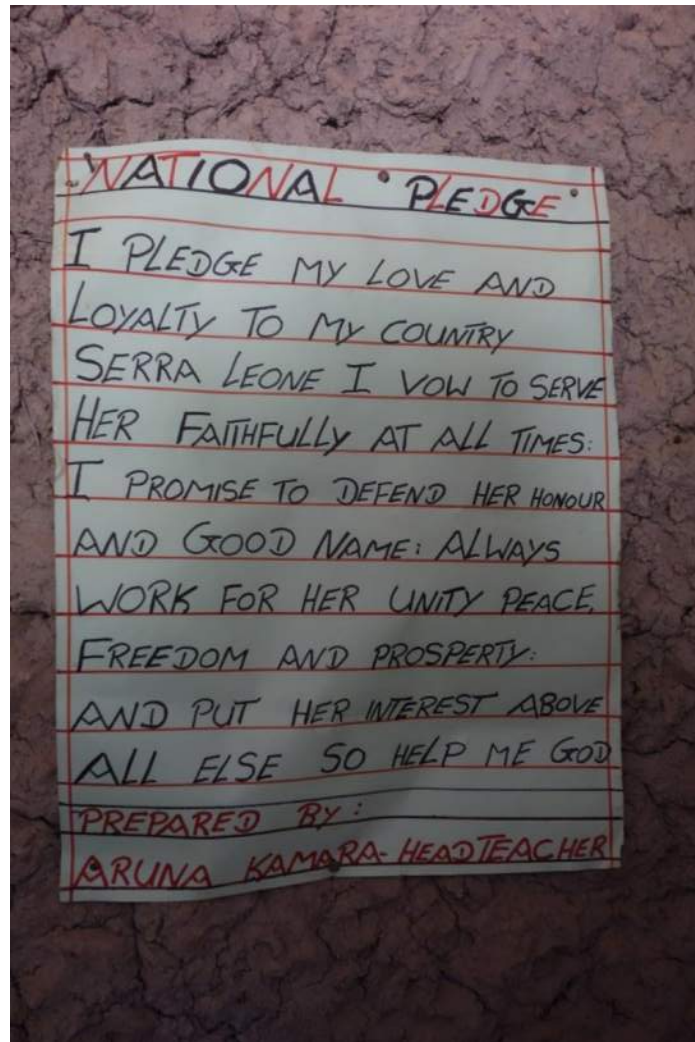 NATIONAL PLEDGE
I PLEDGE MY LOVE AND
LOYALTY TO MY COUNTRY
SERRA LEONE I VOW TO SERVE
HER FAITHFULLY AT ALL TIMES:
I PROMISE TO DEFEND HER HONOUR
AND GOOD NAME: ALWAYS
WORK FOR HER UNITY PEACE,
FREEDOM AND PROSPERTY:
AND PUT HER INTEREST ABOVE
ALL ELSE SO HELP ME GOD
PREPARED BY:
ARUNA KAMARA-HEADTEACHER